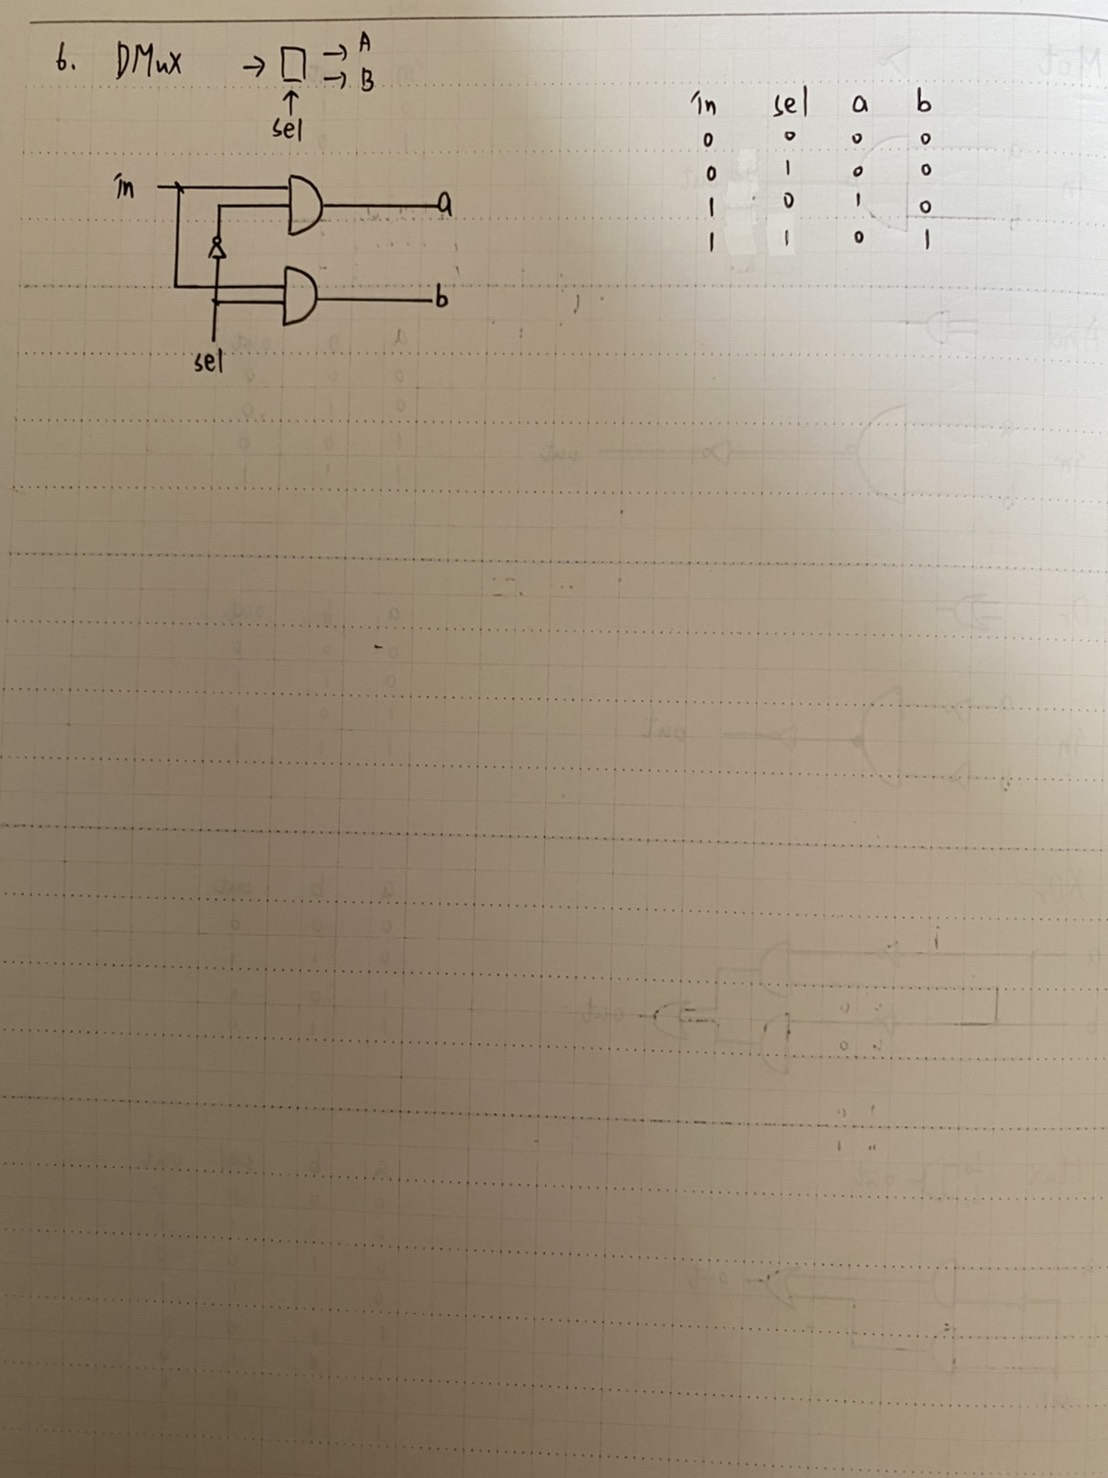 6. DMux → □ → A
→ B
↑
sel
in
a
b
sel
in sel a b
0 0 0 0
0 1 0 0
1 0 1 0
1 1 0 1